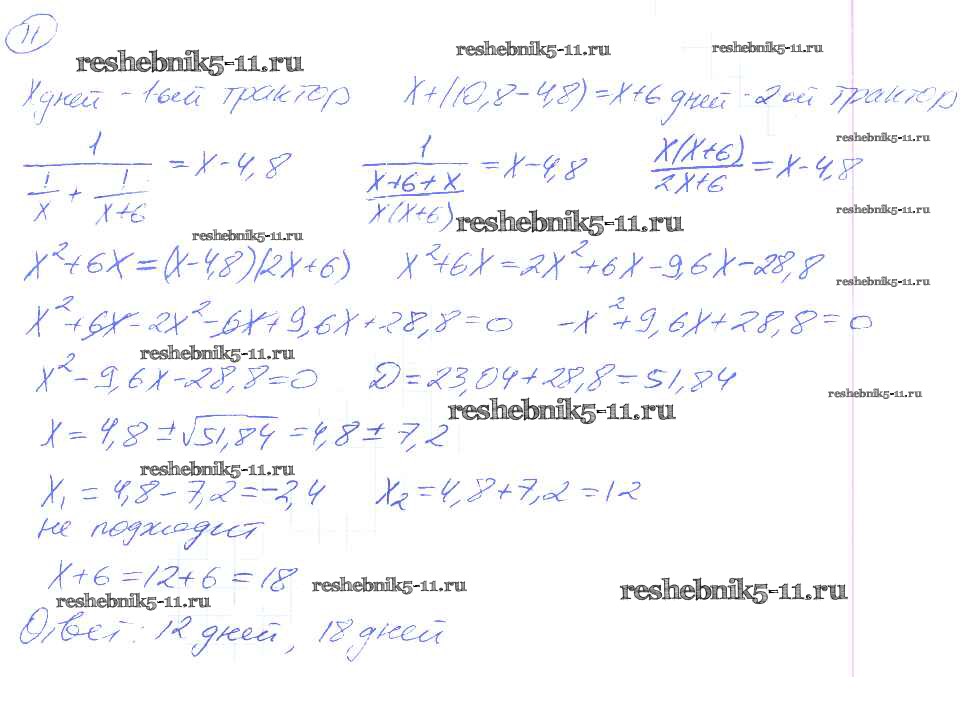 11
reshebnik5-11.ru reshebnik5-11.ru reshebnik5-11.ru
X дней - 1-ый трактор X+(10,8-4,8)=X+6 дней - 2 ой трактор
reshebnik5-11.ru
1/(1/X + 1/(X+6)) = X-4,8 1/((X+6+X)/(X(X+6))) = X-4,8 X(X+6)/(2X+6) = X-4,8
reshebnik5-11.ru reshebnik5-11.ru
reshebnik5-11.ru
X²+6X=(X-4,8)(2X+6) X²+6X=2X²+6X-9,6X-28,8
reshebnik5-11.ru
X²+6X-2X²-6X+9,6X+28,8=0 -X²+9,6X+28,8=0
reshebnik5-11.ru
X²-9,6X-28,8=0 D=23,04+28,8=51,84
reshebnik5-11.ru reshebnik5-11.ru
X=4,8±√51,84=4,8±7,2
reshebnik5-11.ru
X₁=4,8-7,2=-2,4 X₂=4,8+7,2=12
не подходит
X+6=12+6=18
reshebnik5-11.ru reshebnik5-11.ru
reshebnik5-11.ru
Ответ: 12 дней, 18 дней